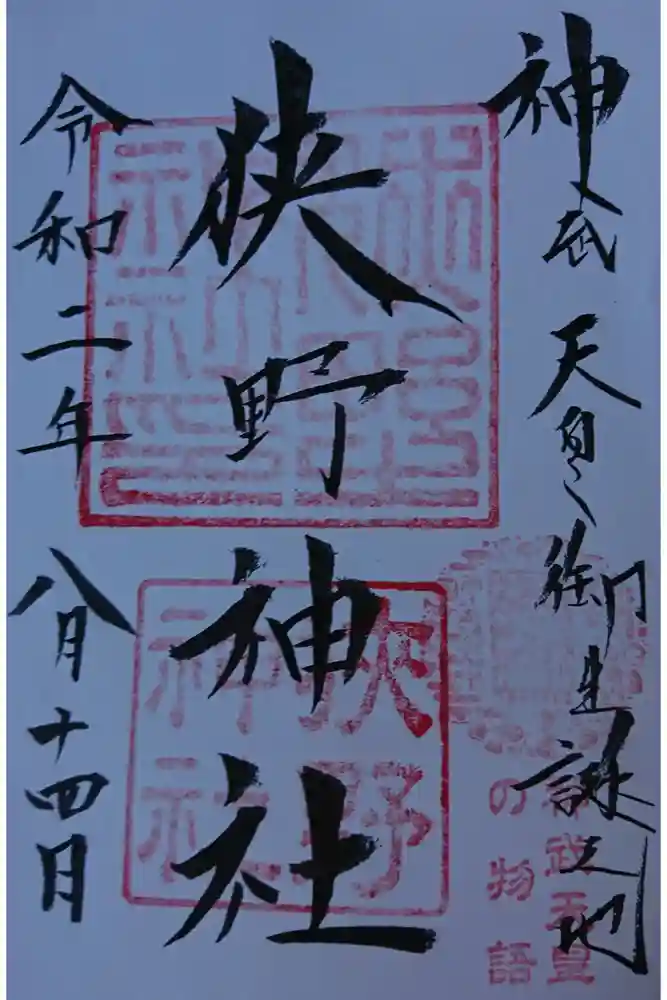 神武天皇御生誕之地
狭野神社
令和二年
八月十四日
狭野
神社
神武天皇
の物語